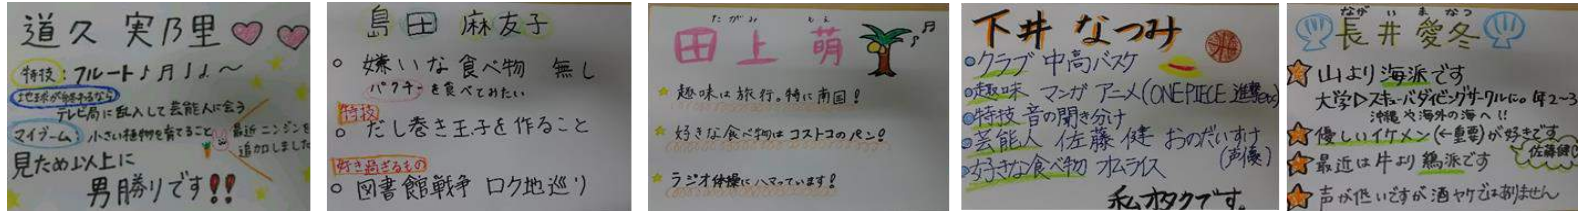 道久 実乃里
特技：フルート♪
地球が終するなら
テレビ局に乱入して芸能人に会う
マイブーム：小さい植物を育てること
最近ニンジンを
追加しました
見ため以上に
男勝りです!!
島田 麻友子
嫌いな食べ物 無し
パクチーを食べてみたい
特技
だし巻き玉子を作ること
好き過ぎるもの
図書館戦争 ロケ地巡り
たがみ もえ
田上 萌
趣味は旅行。特に南国！
好きな食べ物はコストコのパン！
ラジオ体操にハマっています！
下井 なつみ
クラブ 中高バスケ
趣味 マンガ アニメ(ONE PIECE 進撃
特技 音の聞き分け
芸能人 佐藤健 おのだいすけ
(声優)
好きな食べ物 オムライス
私オタクです。
ながい まなつ
長井 愛冬
山より海派です
大学▷スキューバダイビングサークルに。年2~3
沖縄や海外の海へ!!
優しいイケメン(←重要)が好きです
佐藤健
最近は牛より鶏派です
声が低いですが酒ヤケではありません